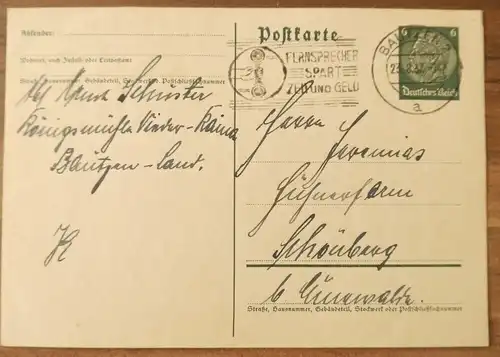 Absender:
Wohnort, auch Zustell- oder Leitpostamt
Straße, Hausnummer, Gebäudeteil, Stockwerk od. Postschließfachnummer
Schuster
Königsmühle Nieder-Kaina
Bautzen-Land.
Postkarte
FERNSPRECHER
SPART
ZEIT UND GELD
BAUTZEN
a
6 6
Deutsches Reich
Herrn Jeremias
Hühnerfarm
Schönberg
b. Cunewalde.
Straße, Hausnummer, Gebäudeteil, Stockwerk oder Postschließfachnummer